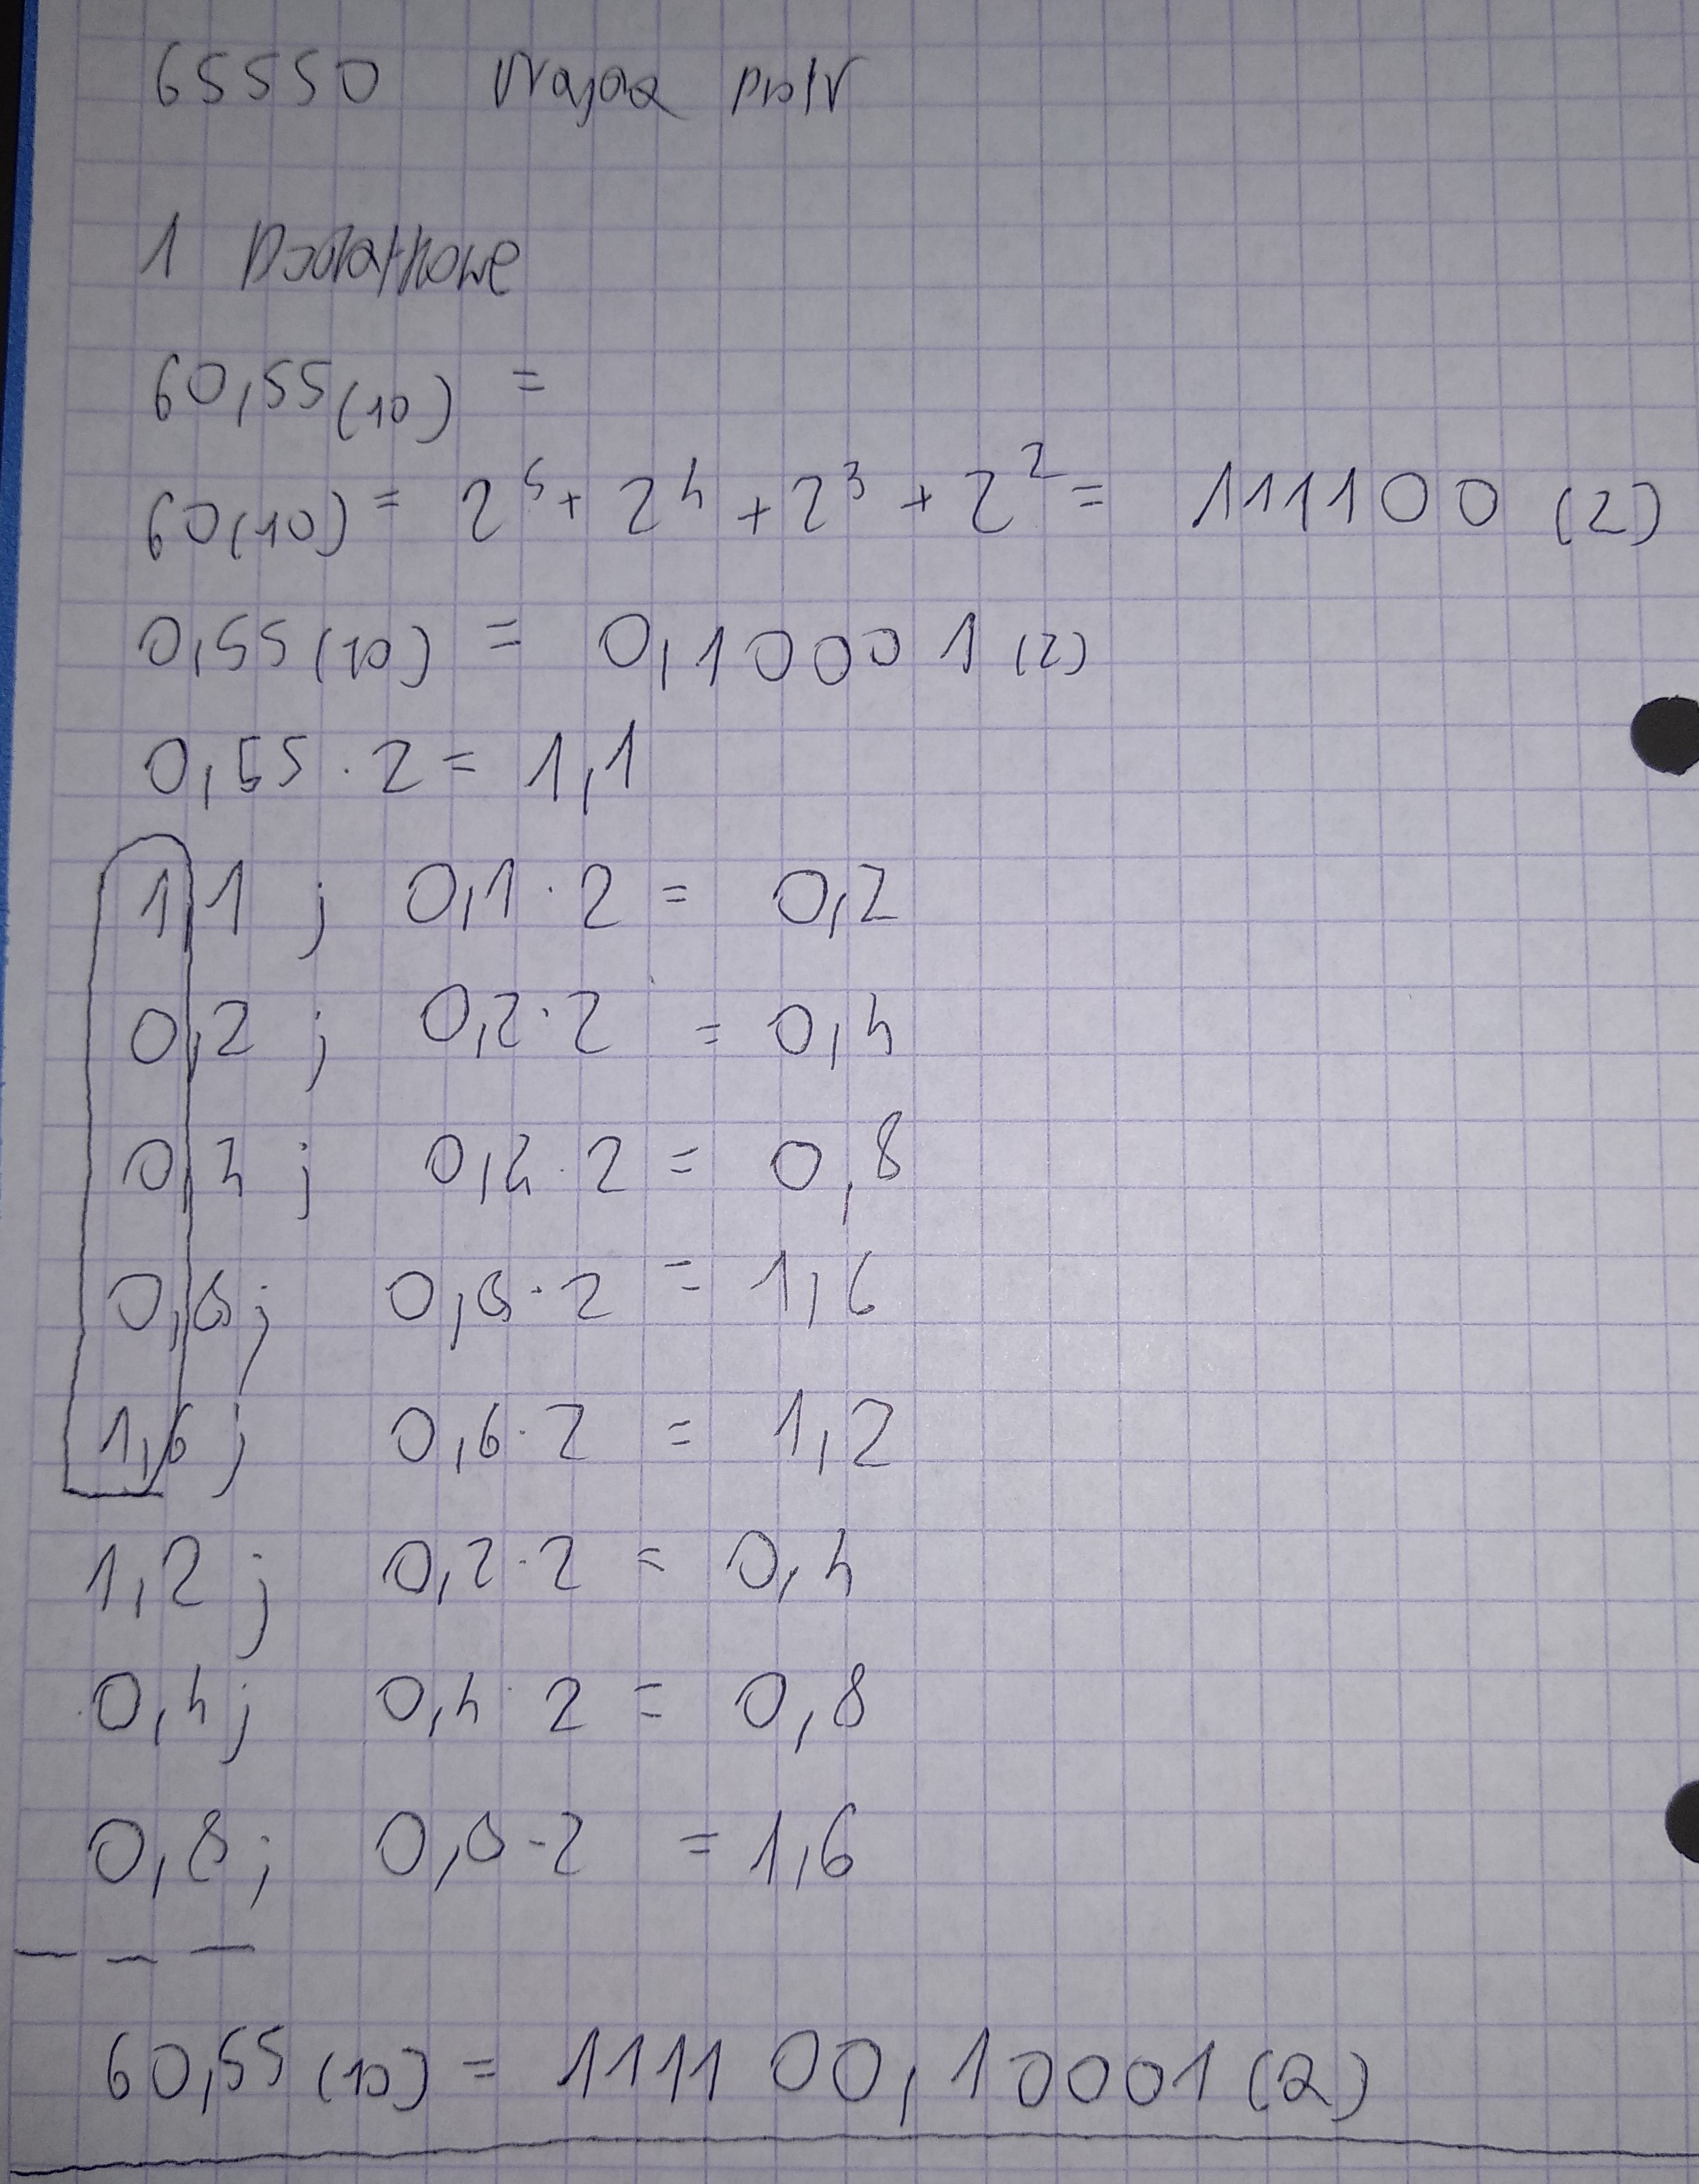 65550 Wajda Piotr
1 Dodatkowe
60,55(10) =
60(10) = 2⁵ + 2⁴ + 2³ + 2² = 111100 (2)
0,55(10) = 0,10001(2)
0,55 · 2 = 1,1
1,1 ; 0,1 · 2 = 0,2
0,2 ; 0,2 · 2 = 0,4
0,4 ; 0,4 · 2 = 0,8
0,8 ; 0,8 · 2 = 1,6
1,6 ; 0,6 · 2 = 1,2
1,2 ; 0,2 · 2 = 0,4
0,4 ; 0,4 · 2 = 0,8
0,8 ; 0,8 · 2 = 1,6
– – –
60,55 (10) = 111100,10001 (2)